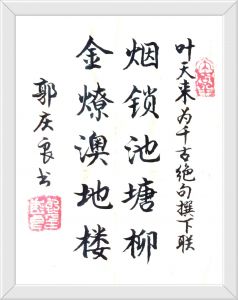 叶天来为千古绝句撰下联
烟锁池塘柳
金燎澳地楼
郭庆良书